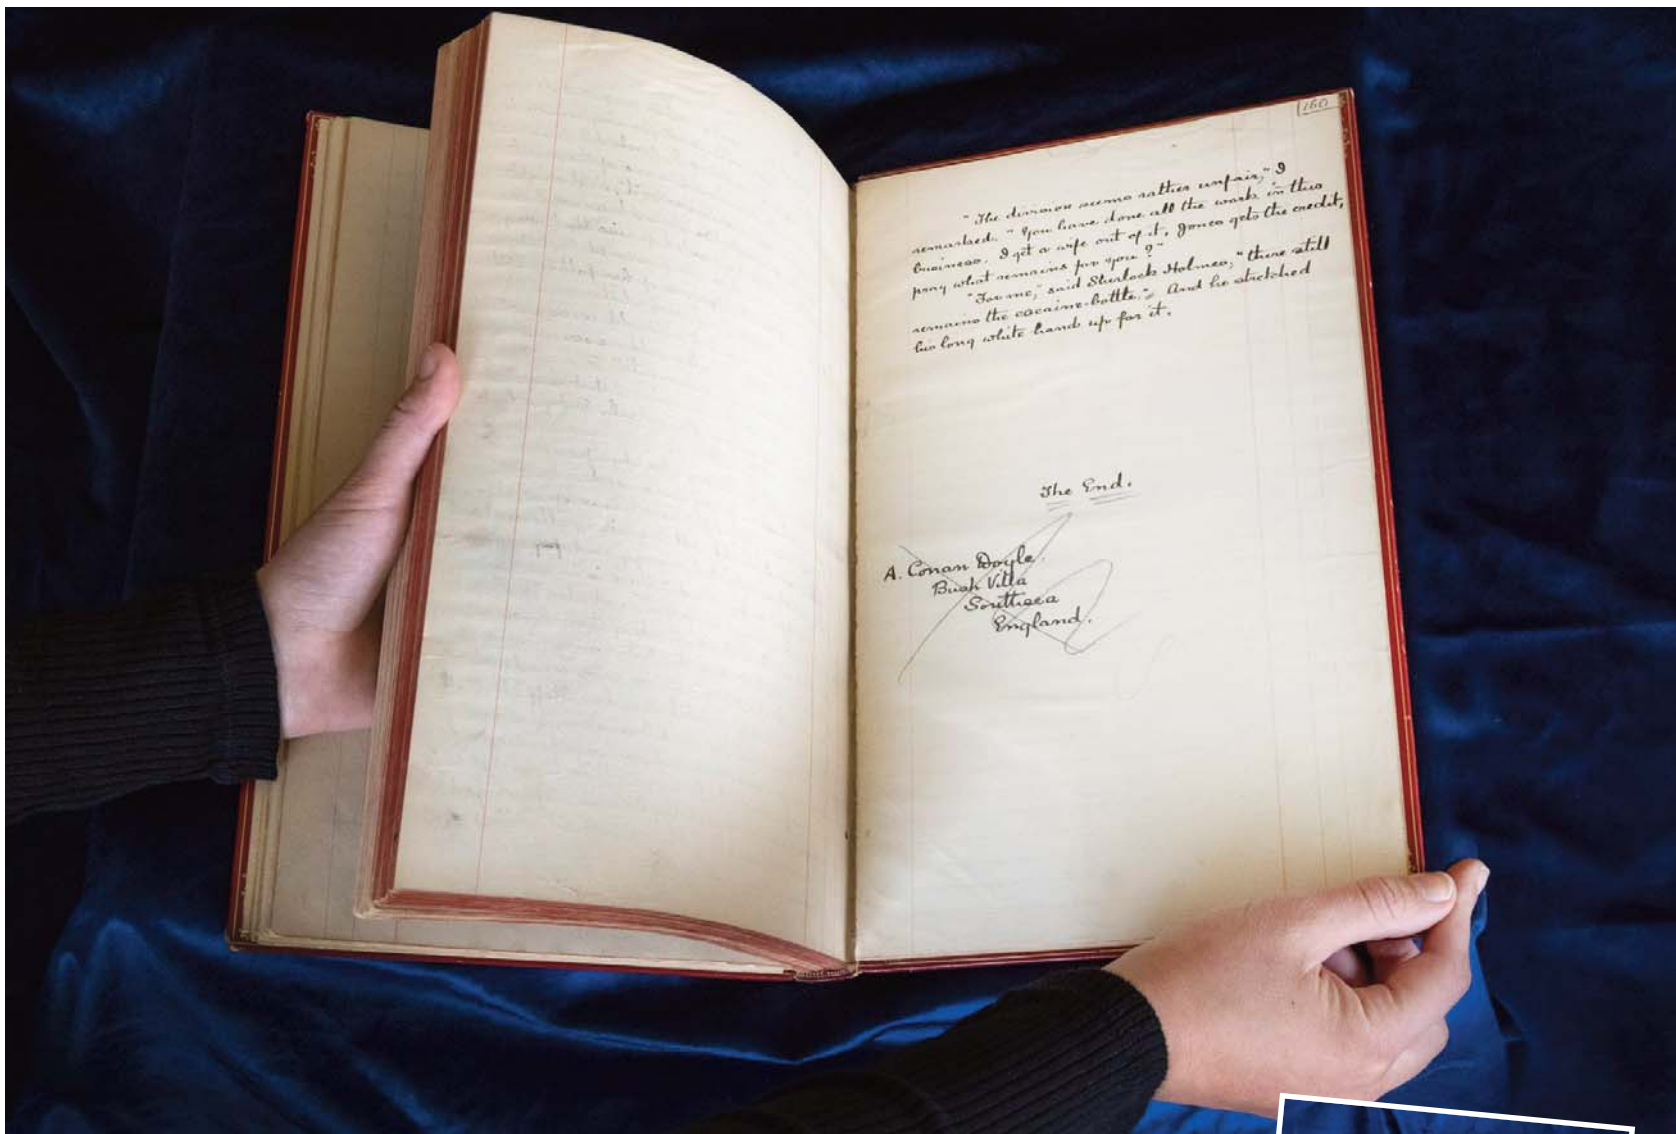 160
"The division seems rather unfair," I
remarked. "You have done all the work in this
business. I get a wife out of it, Jones gets the credit,
pray what remains for you?"
"For me," said Sherlock Holmes, "there still
remains the cocaine-bottle." And he stretched
his long white hand up for it.
The End.
A. Conan Doyle.
Bush Villa
Southsea
England.